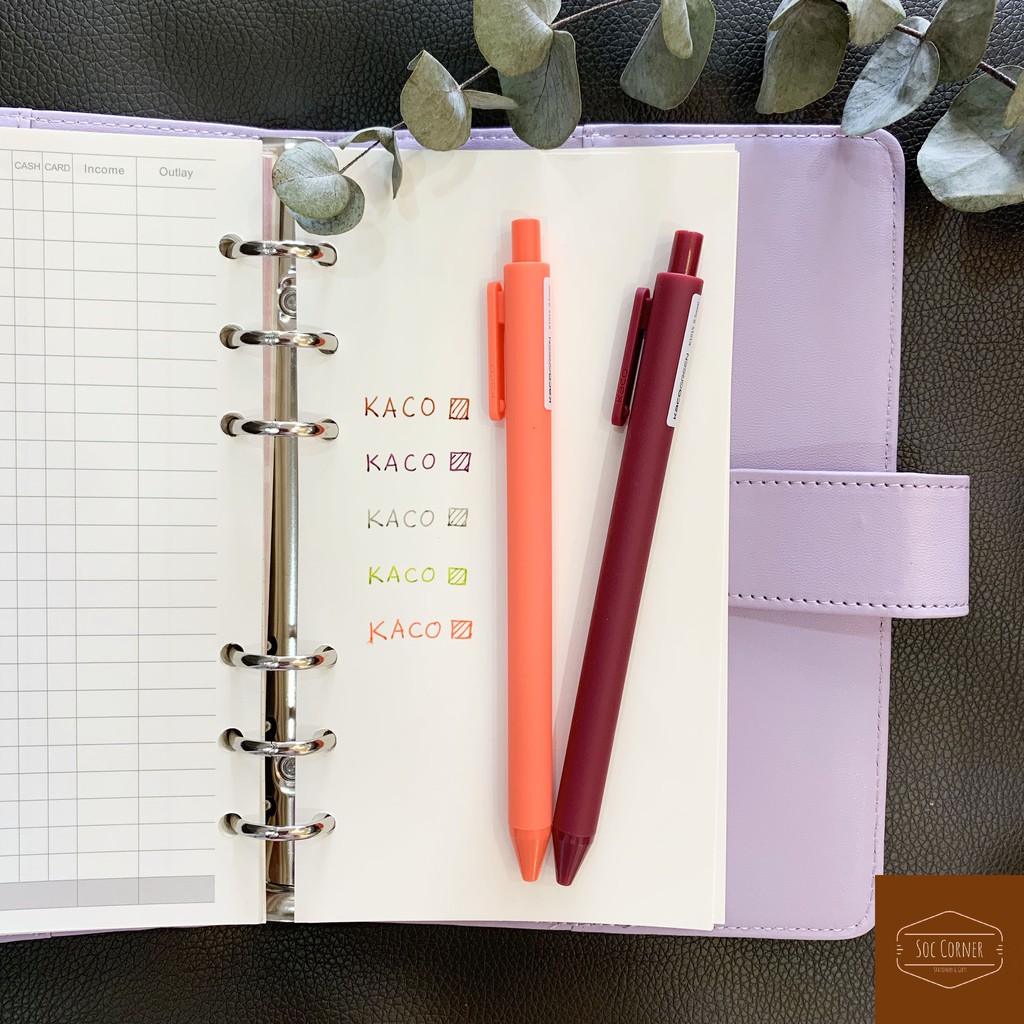 CASH CARD Income Outlay
KACO
KACO
KACO
KACO
KACO
KACO
KACO
KACOGREEN
KACOGREEN
SOC CORNER
STATIONERY & GIFT